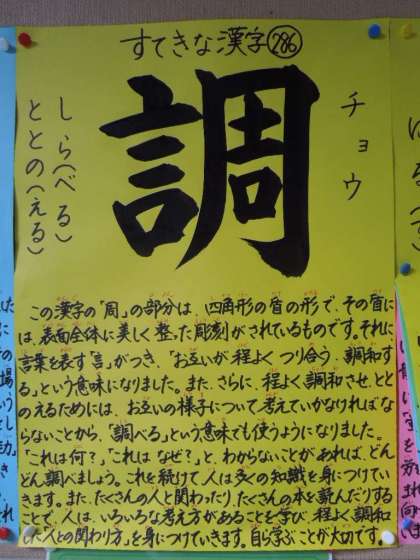 すてきな漢字 286
調
チョウ
しら(べる)
ととの(える)
この漢字の「周」の部分は、四角形の盾の形で、その盾に
は、表面全体に美しく整った彫刻がされているものです。それに
言葉を表す「言」がつき、「お互いが程よくつり合う、調和す
る」という意味になりました。また、さらに、程よく調和させ、とと
のえるためには、お互いの様子について考えていかなければな
らないことから、「調べる」という意味でも使うようになりました。
「これは何?」「これはなぜ?」と、わからないことがあれば、どん
どん調べましょう。これを続けて人は多くの知識を身につけてい
きます。また、たくさんの人と関わったり、たくさんの本を読んだりする
ことで、人は、いろいろな考え方があることを学び、程よく調和
した人との関わり方」を身につけていきます。自ら学ぶことが大切です。